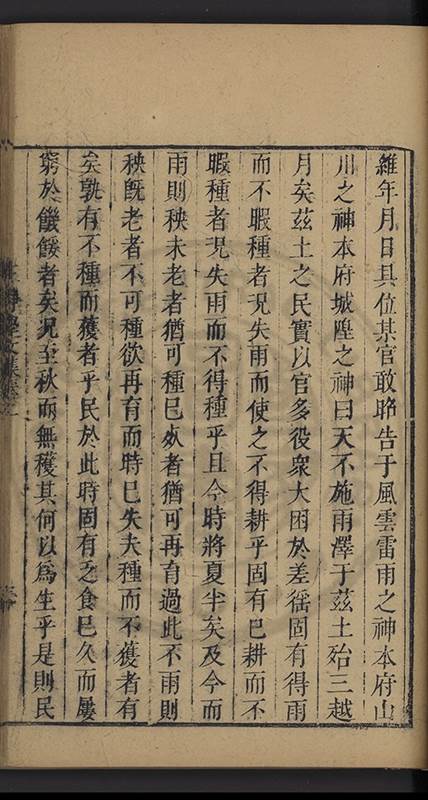 維年月日具位某官敢昭告于風雲雷雨之神本府山
川之神本府城隍之神曰天不施雨澤于茲土殆三越
月矣茲土之民實以官多役衆大困於差徭固有得雨
而不暇種者況失雨而使之不得耕乎固有已耕而不
暇種者況失雨而不得種乎且今時將夏半矣及今而
雨則秧未老者猶可種已老者猶可再育過此不雨則
秧旣老者不可種欲再育而時已失夫種而不獲者有
矣孰有不種而獲者乎民於此時固有乏食已久而屢
窮於饑餒者矣況至秋而無穫其何以爲生乎是則民